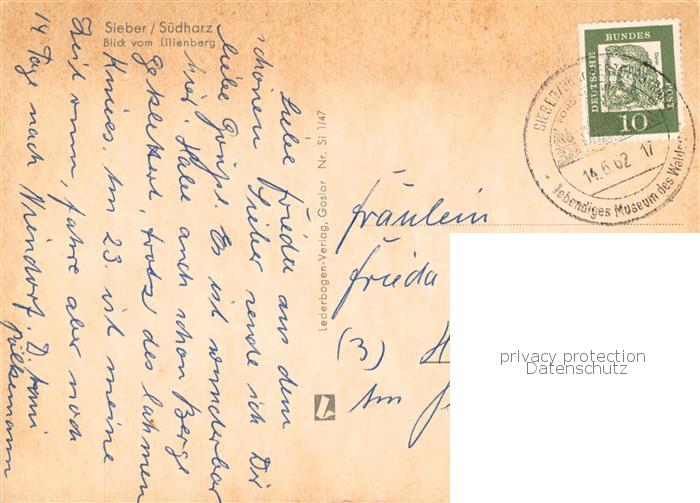 Sieber / Südharz
Blick vom Lilienberg
Liebe Frieda aus dem
schönen Sieber sende ich Dir
liebe Grüße. Es ist wunderbar
hier. Habe auch schon Berge
geklettert, trotz des lahmen
Knies. Am 23. ist meine
Zeit rum, fahre aber noch
14 Tage nach Niendorf. D.
Lederbogen-Verlag, Goslar Nr. Si 1/47
DEUTSCHE
BUNDES
POST
10
SIEBER
14.6.62 17
lebendiges Museum des Waldes
Fräulein
Frieda
(3) H
Am
privacy protection
Datenschutz